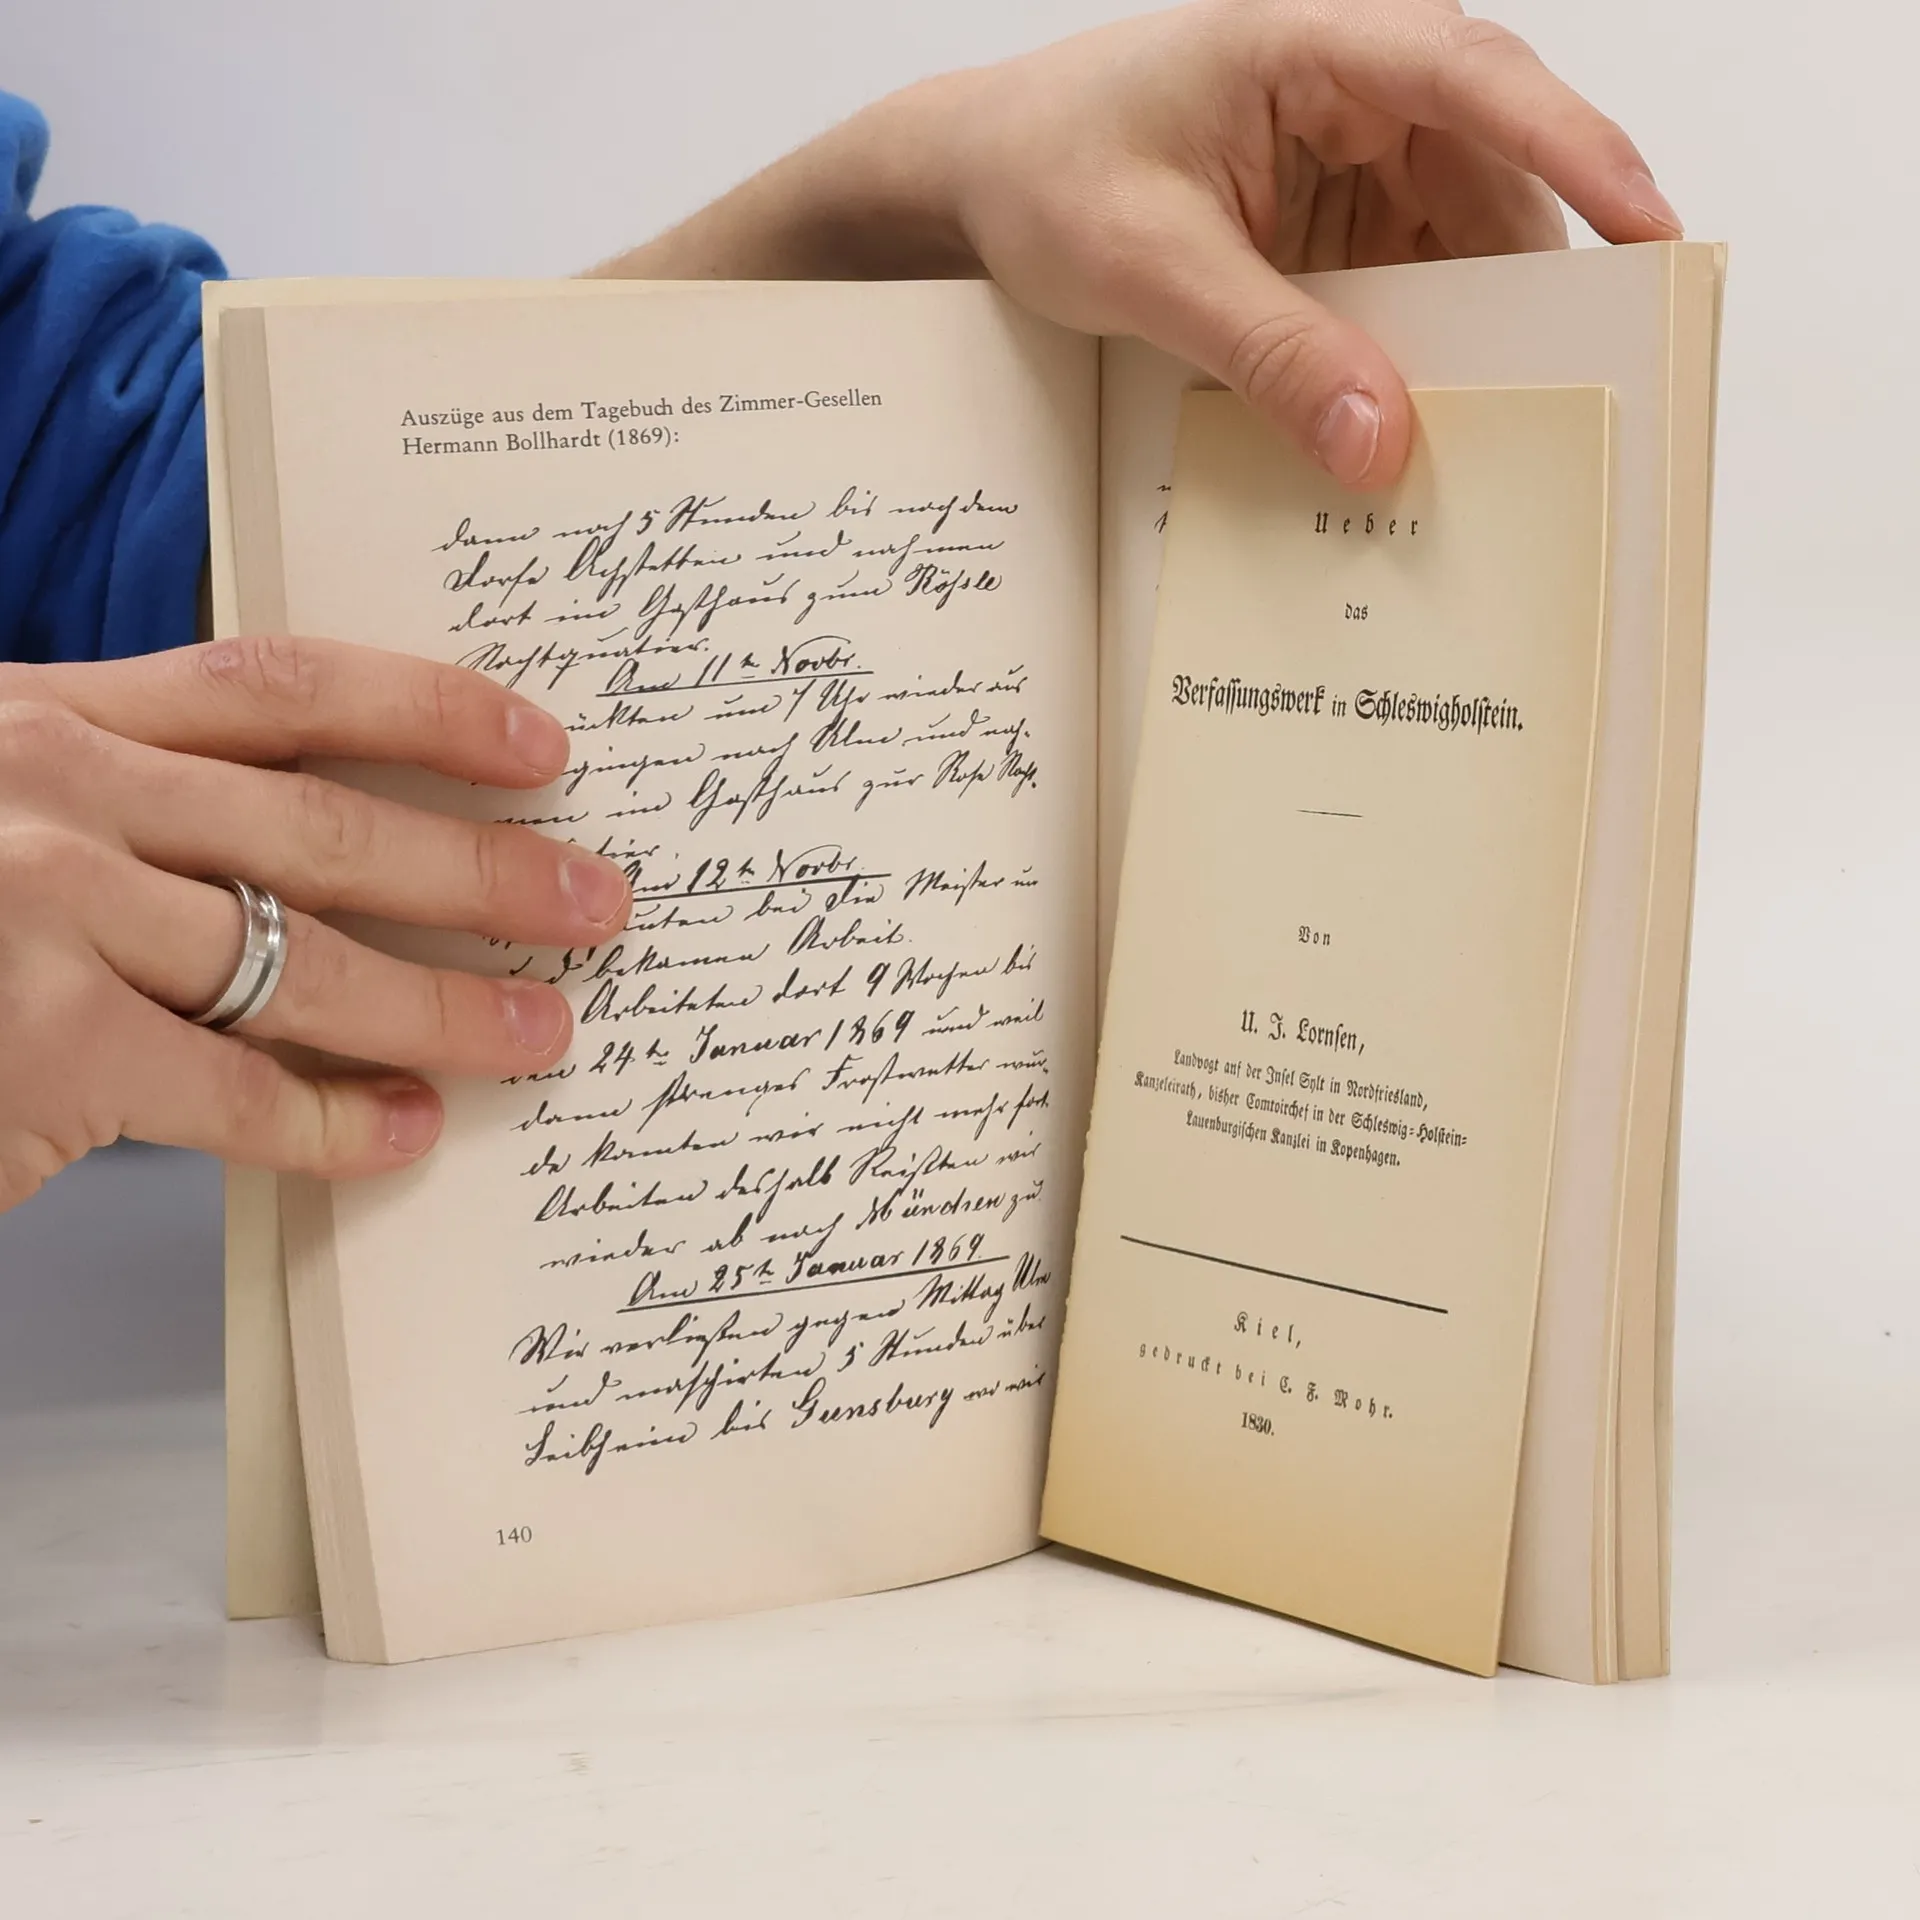 Auszüge aus dem Tagebuch des Zimmer-Gesellen
Hermann Bollhardt (1869):
dann noch 5 Stunden bis nach dem
Dorfe Achstetten und nahmen
dort im Gasthaus zum Rößle
Nachtquatier.
Am 11te Novbr.
ückten um 7 Uhr wieder aus
gingen nach Ulm und nah-
men im Gasthaus zur Rose Nacht-
tier.
Am 12te Novbr.
auten bei die Meister um
bekamen Arbeit.
Arbeiteten dort 9 Wochen bis
den 24te Januar 1869 und weil
dann strenges Frostwetter wur-
de konnten wir nicht mehr fort
Arbeiten deshalb Reißten wir
wieder ab nach München zu.
Am 25te Januar 1869.
Wir verließen gegen Mittag Ulm
und maschirten 5 Stunden über
Leibheim bis Gunsburg wo wir
140
Ueber
das
Verfassungswerk in Schleswigholstein.
Von
U. J. Lornsen,
Landvogt auf der Insel Sylt in Nordfriesland,
Kanzeleirath, bisher Comtoirchef in der Schleswig-Holstein-
Lauenburgischen Kanzlei in Kopenhagen.
Kiel,
gedruckt bei C. F. Mohr.
1830.